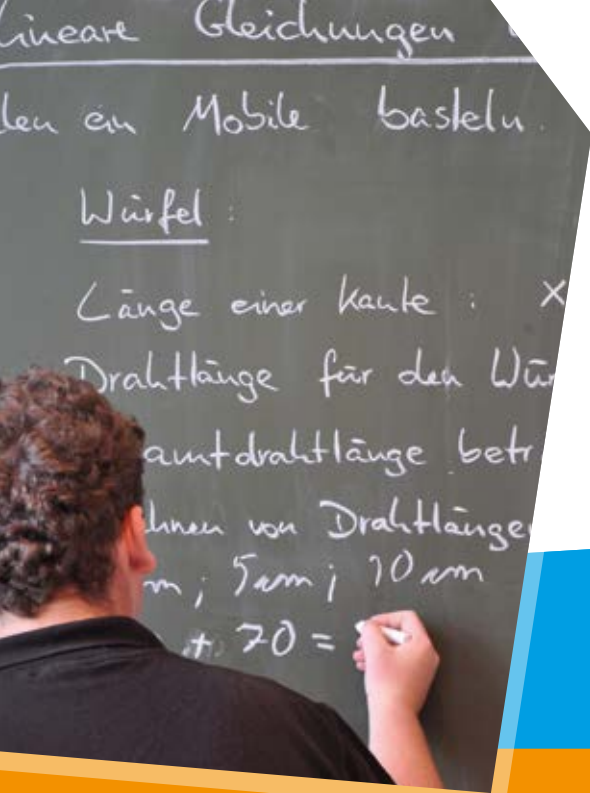 Lineare Gleichungen
len ein Mobile basteln.
Würfel :
Länge einer Kante : X
Drahtlänge für den Wür
amtdrahtlänge betr
hnen von Drahtlängen
m ; 5 cm ; 10 cm
+ 70 =